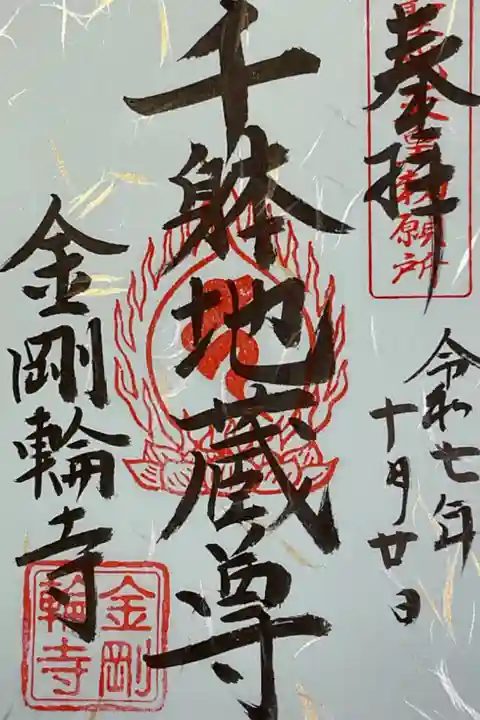 奉拝
勅願所
令和七年
十月廿日
千躰地蔵尊
金剛輪寺
金剛
輪寺